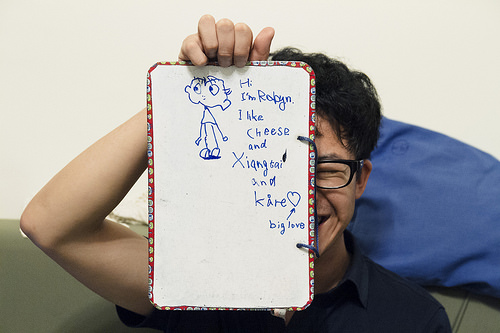 Hi
I'm Robyn.
I like
cheese
and
Xiangsai
and
Kåre♡
big love